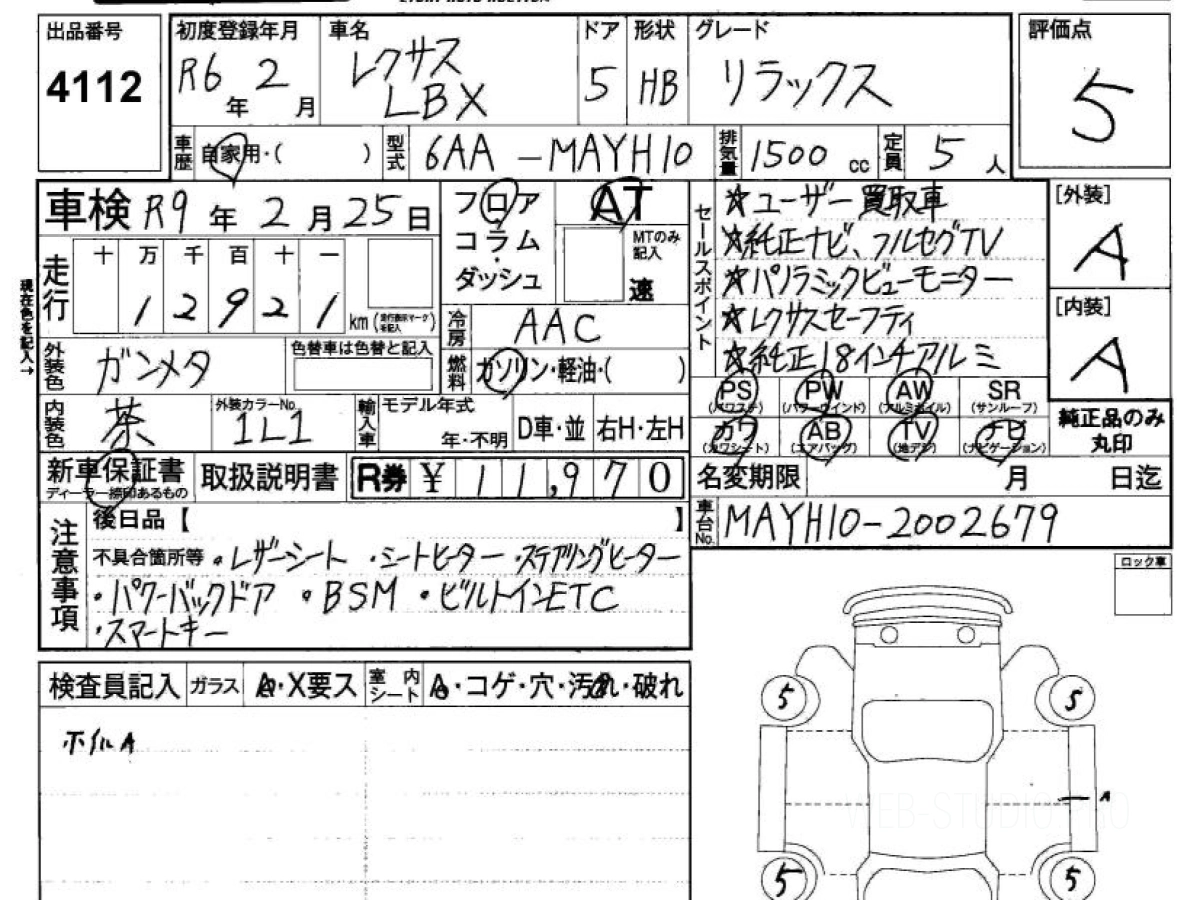 出品番号
4112
初度登録年月
R6年 2月
車名
レクサス
LBX
ドア
5
形状
HB
グレード
リラックス
評価点
5
車歴
自家用・( )
型式
6AA-MAYH10
排気量
1500 cc
定員
5人
車検 R9年 2月25日
フロア
コラム
・
ダッシュ
AT
MTのみ記入
速
セールスポイント
☆ユーザー買取車
☆純正ナビ、フルセグTV
☆パノラミックビューモニター
☆レクサスセーフティ
☆純正18インチアルミ
[外装]
A
[内装]
A
現在色を記入→
走行
十 万 千 百 十 一
1 2 9 2 1
km (走行表示マークを記入)
冷房
AAC
外装色
ガンメタ
色替車は色替と記入
燃料
ガソリン・軽油・( )
内装色
茶
外装カラーNo.
1L1
輸入車
モデル年式
年・不明
D車・並
右H・左H
PS (パワステ)
PW (パワーウインド)
AW (アルミホイル)
SR (サンルーフ)
カワ (カワシート)
AB (エアバッグ)
TV (地デジ)
ナビ (ナビゲーション)
純正品のみ
丸印
新車保証書
ディーラー捺印あるもの
取扱説明書
R券 ¥ 11,970
名変期限 月 日迄
注意事項
後日品【 】
車台No.
MAYH10-2002679
不具合箇所等 ・レザーシート ・シートヒーター ・ステアリングヒーター
・パワーバックドア ・BSM ・ビルトインETC
・スマートキー
ロック車
検査員記入
ガラス
A・X要ス
室内シート
A・コゲ・穴・汚れ・破れ
ホイルA
5
5
A
WEB-STUDIO.PRO
5
5